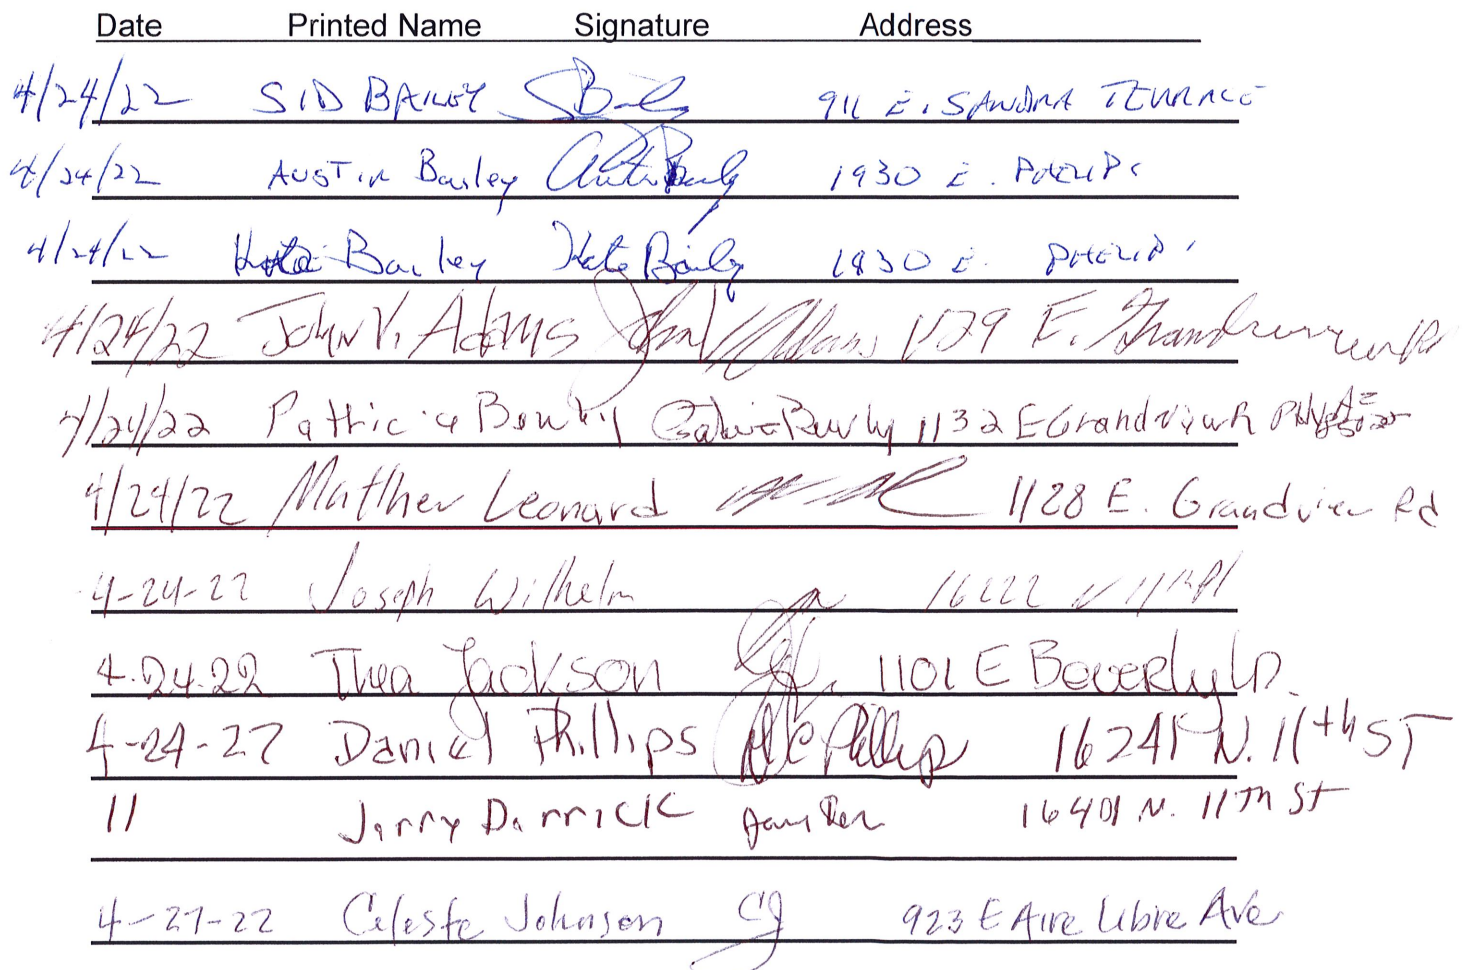 Date Printed Name Signature Address
4/24/22 SID BAILEY SBaily 911 E. SANDRA TERRACE
4/24/22 AUSTIN Bailey 1930 E. PHELPS
4/24/22 Kate Bailey Kate Baily 1930 E. PHELPS
4/24/22 John V. Adams John V Adams 1129 E. Grandview Rd
4/24/22 Patricia 1132 E Grandview R
4/24/22 Matthew Leonard 1128 E. Grandview Rd
4-24-22 Joseph Wilhelm 16222 N 11th Pl
4-24-22 Thea Jackson 1101 E Beverly Ln.
4-24-22 Daniel Phillips Phillips N. 11th ST
11 Jerry Derrick 16401 N. 11Th St
4-27-22 Celeste Johnson CJ 923 E Aire Libre Ave